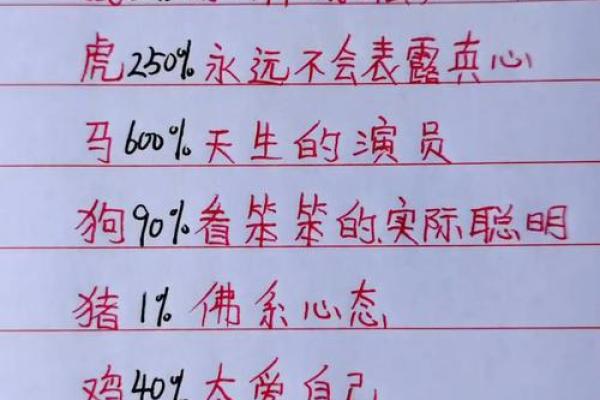 虎250%永远不会表露真心
马600%天生的演员
狗90%看笨笨的实际聪明
猪1%佛系心态
鸡40%太爱自己